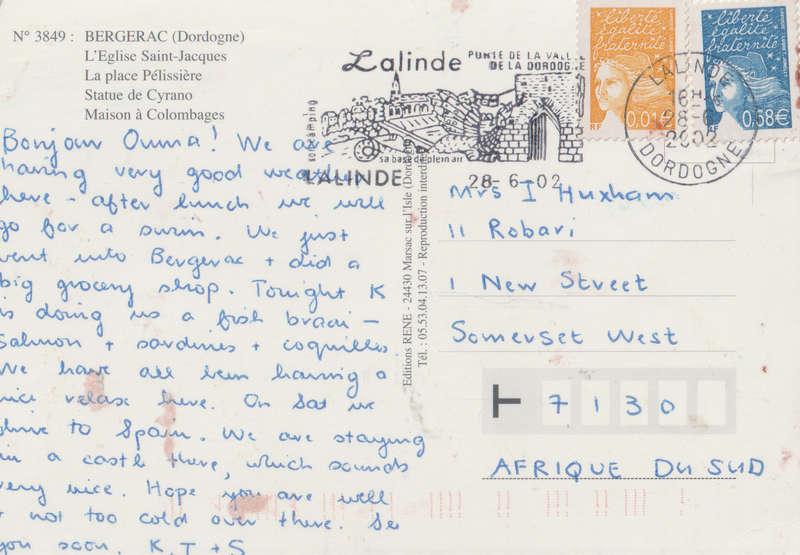 N° 3849 : BERGERAC (Dordogne)
L'Eglise Saint-Jacques
La place Pélissière
Statue de Cyrano
Maison à Colombages
Bonjour Ouma! We are
having very good weather
here - after lunch we will
go for a swim. We just
went into Bergerac + did a
big grocery shop. Tonight K
is doing us a fish braai -
salmon + sardines + coquilles.
We have all been having a
nice relax here. On Sat we
drive to Spain. We are staying
in a castle there, which sounds
very nice. Hope you are well
+ not too cold over there. See
you soon. K, T + S
Editions RENE - 24430 Marsac sur l'Isle (Dordogne) - Reproduction interdite
Tél. : 05.53.04.13.07
Lalinde
PORTE DE LA VALLEE
DE LA DORDOGNE
son camping
sa base de plein air
LALINDE
28-6-02
liberté
égalité
fraternité
RF
0.01€
liberté
égalité
fraternité
0.58€
LALINDE
16H
28-6
2002
DORDOGNE
Mrs I Huxham
11 Robari
1 New Street
Somerset West
7130
AFRIQUE DU SUD